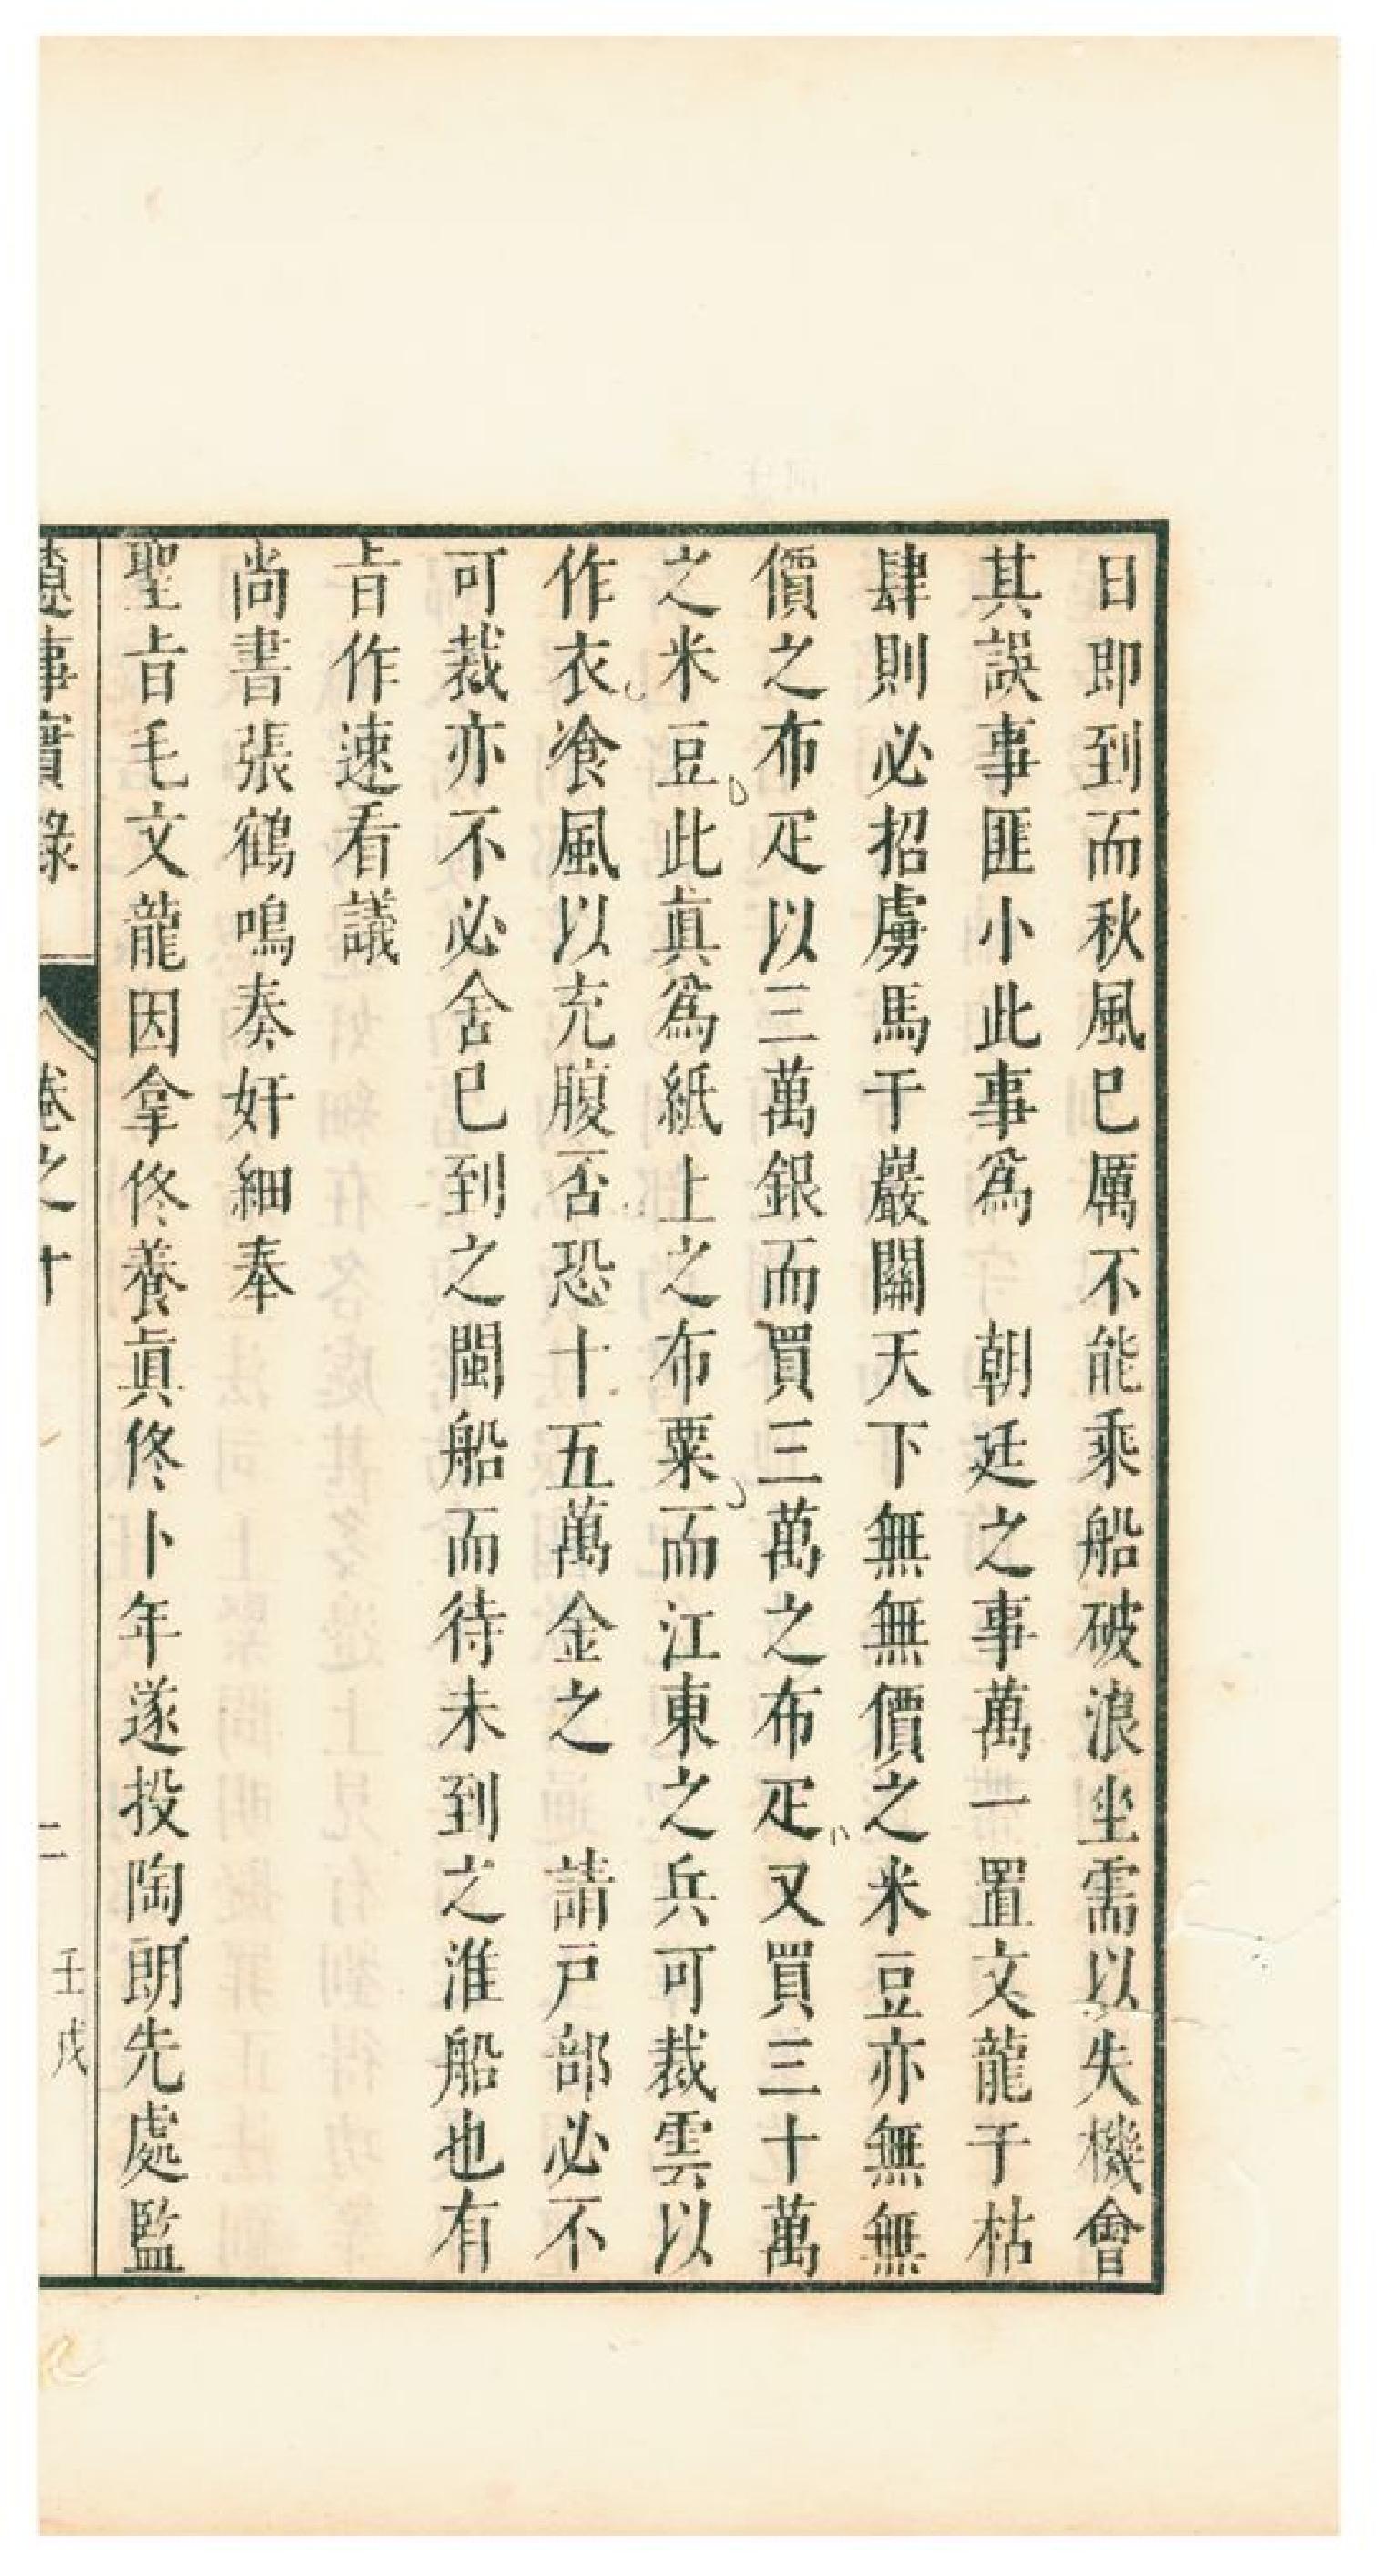 日即到而秋風巳厲不能乘船破浪坐需以失機會
其誤事匪小此事爲　朝廷之事萬一置文龍于枯
肆則必招虜馬干巖關天下無無價之米豆亦無無
價之布疋以三萬銀而買三萬之布疋又買三十萬
之米豆此眞爲紙上之布粟而江東之兵可裁雲以
作衣飡風以充腹否恐十五萬金之　請戸部必不
可裁亦不必舍巳到之閩船而待未到之淮船也有
㫖作速看議
尚書張鶴鳴奏奸細奉
聖㫖毛文龍因拿佟養眞佟卜年遂投陶朗先處監
遼事實錄　卷之十　二　壬戌